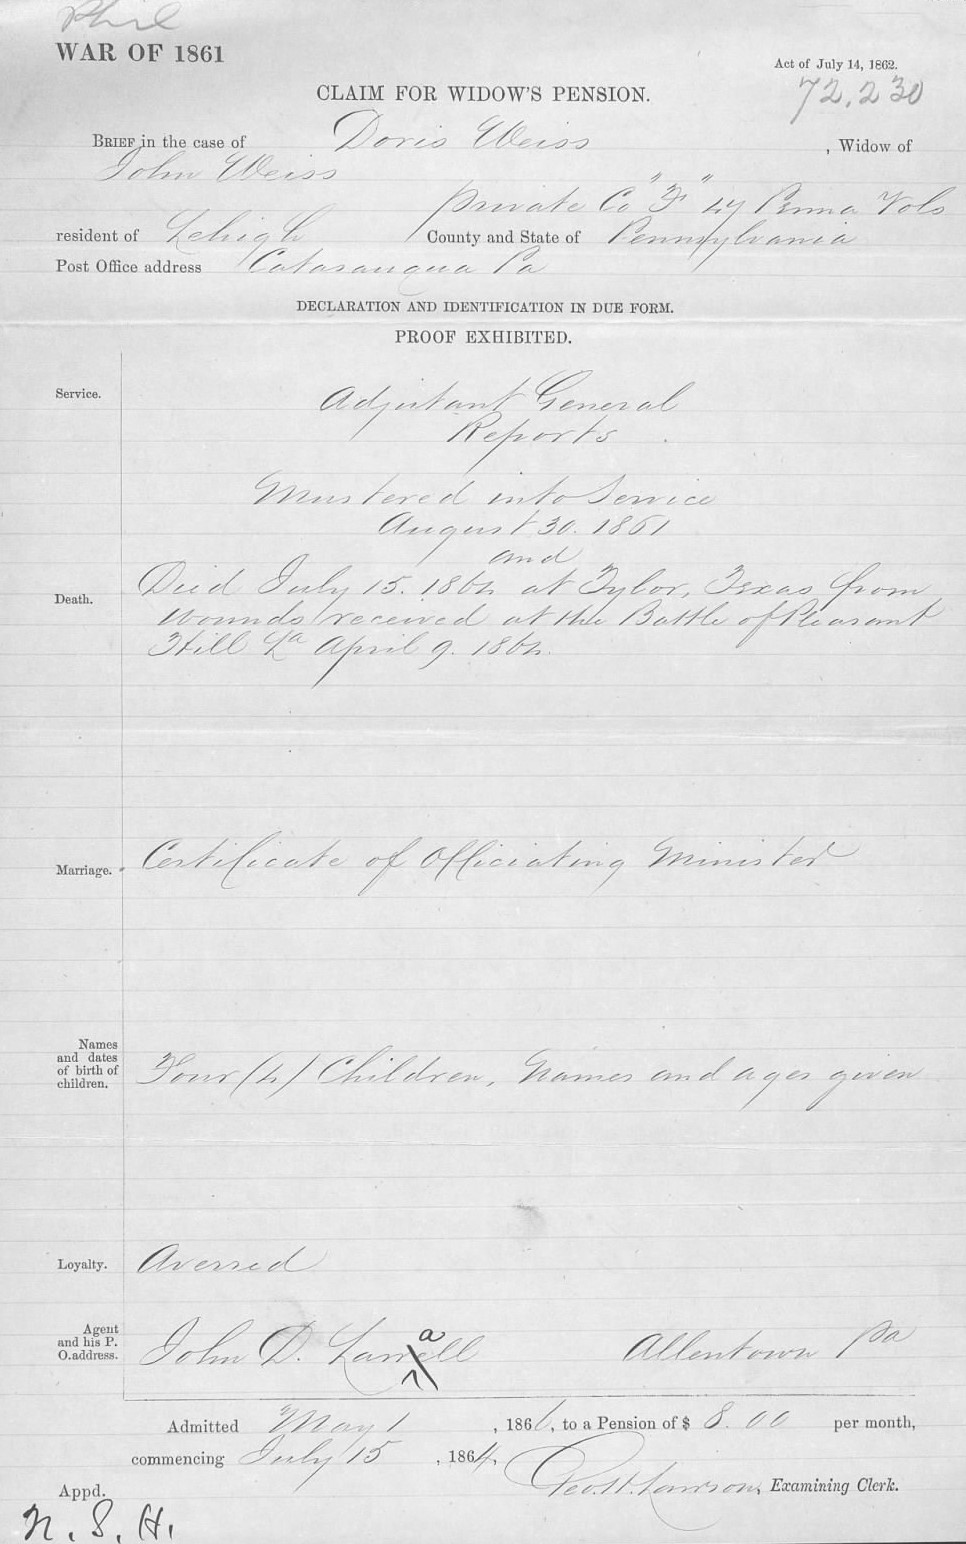 Phil
WAR OF 1861
Act of July 14, 1862.
CLAIM FOR WIDOW'S PENSION.
72,230
BRIEF in the case of Doris Weiss , Widow of
John Weiss
private Co "F" 47 Penna Vols
resident of Lehigh County and State of Pennsylvania
Post Office address Catasauqua Pa
DECLARATION AND IDENTIFICATION IN DUE FORM.
PROOF EXHIBITED.
Service.
Adjutant General
Reports
Mustered into Service
August 30. 1861
and
Death.
Died July 15. 1864 at Tylor, Texas from
wounds received at the Battle of Pleasant
Hill La April 9. 1864.
Marriage.
Certificate of Officiating Minister
Names
and dates
of birth of
children.
Four (4) Children, Names and ages given
Loyalty.
Averred
Agent
and his P.
O. address.
a
John D. Lawell Allentown Pa
Admitted May 1 , 1866, to a Pension of $ 8.00 per month,
commencing July 15 , 1864,
Geo. H. Lawson, Examining Clerk.
Appd.
N. S. H.